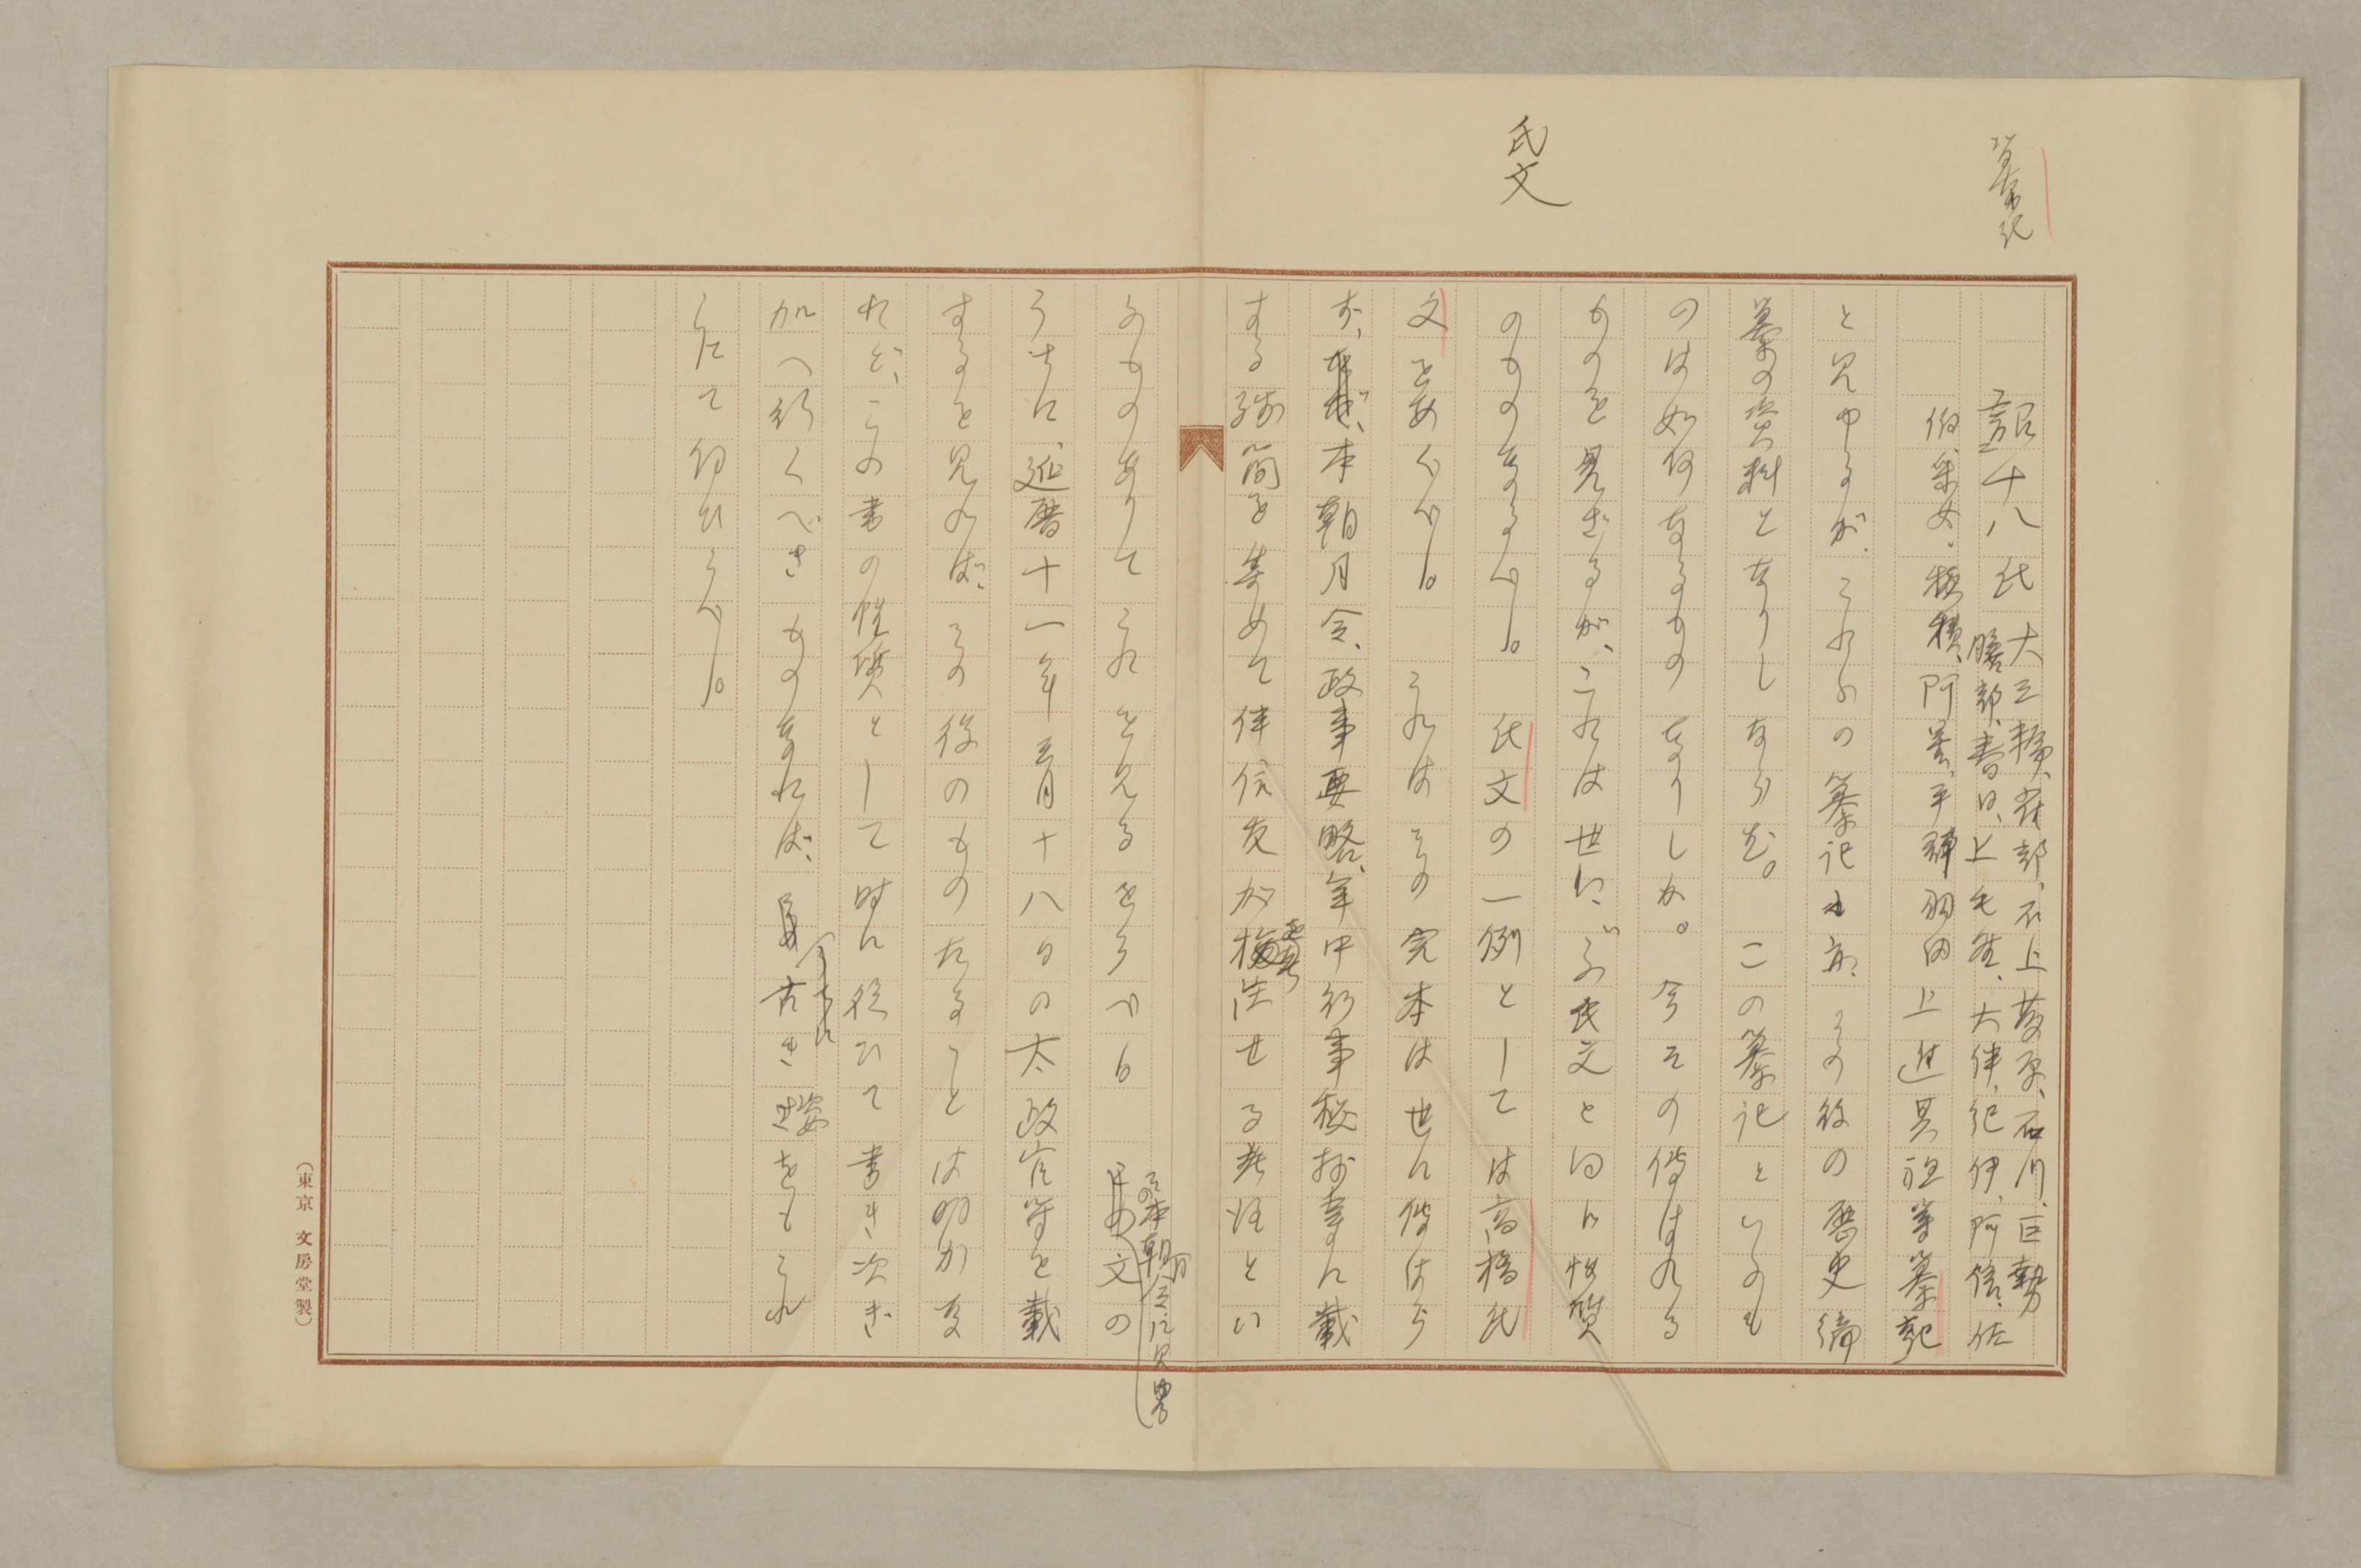 纂記
氏文
詔十八氏 大三輪、雀部、石上、藤原、石川、巨勢
膳部、春日、上毛野、大伴、紀伊、阿倍、佐
伯、采女、穂積、阿曇、平群、羽田 上進其祖等纂記
と見ゆるが、これらの纂記も亦、その後の歴史編
纂の資料となりしならむ。 この纂記といふも
のは如何なるものなりしか。今その伝はれる
ものを見ざるが、これは世にいふ氏文と同じ性質
のものなるべし。 氏文の一例としては高橋氏
文をあぐべし。 これはその完本は世に伝はら
ず、本朝月令、政事要略、年中行事秘抄等に載
する残簡を集めて伴信友が考注せる考注とい
ふものありてこれを見るをうべし 文の
その本朝月令に見ゆる
うちに、延暦十一年三月十八日の太政官符を載
するを見れば、その後のものたることは明かな
れど、この書の性質として時に従ひて書き次ぎ
加へ行くべきものなれば、古き姿をもこれ
うちに
にて伺ひうべし。
（東京 文房堂製）